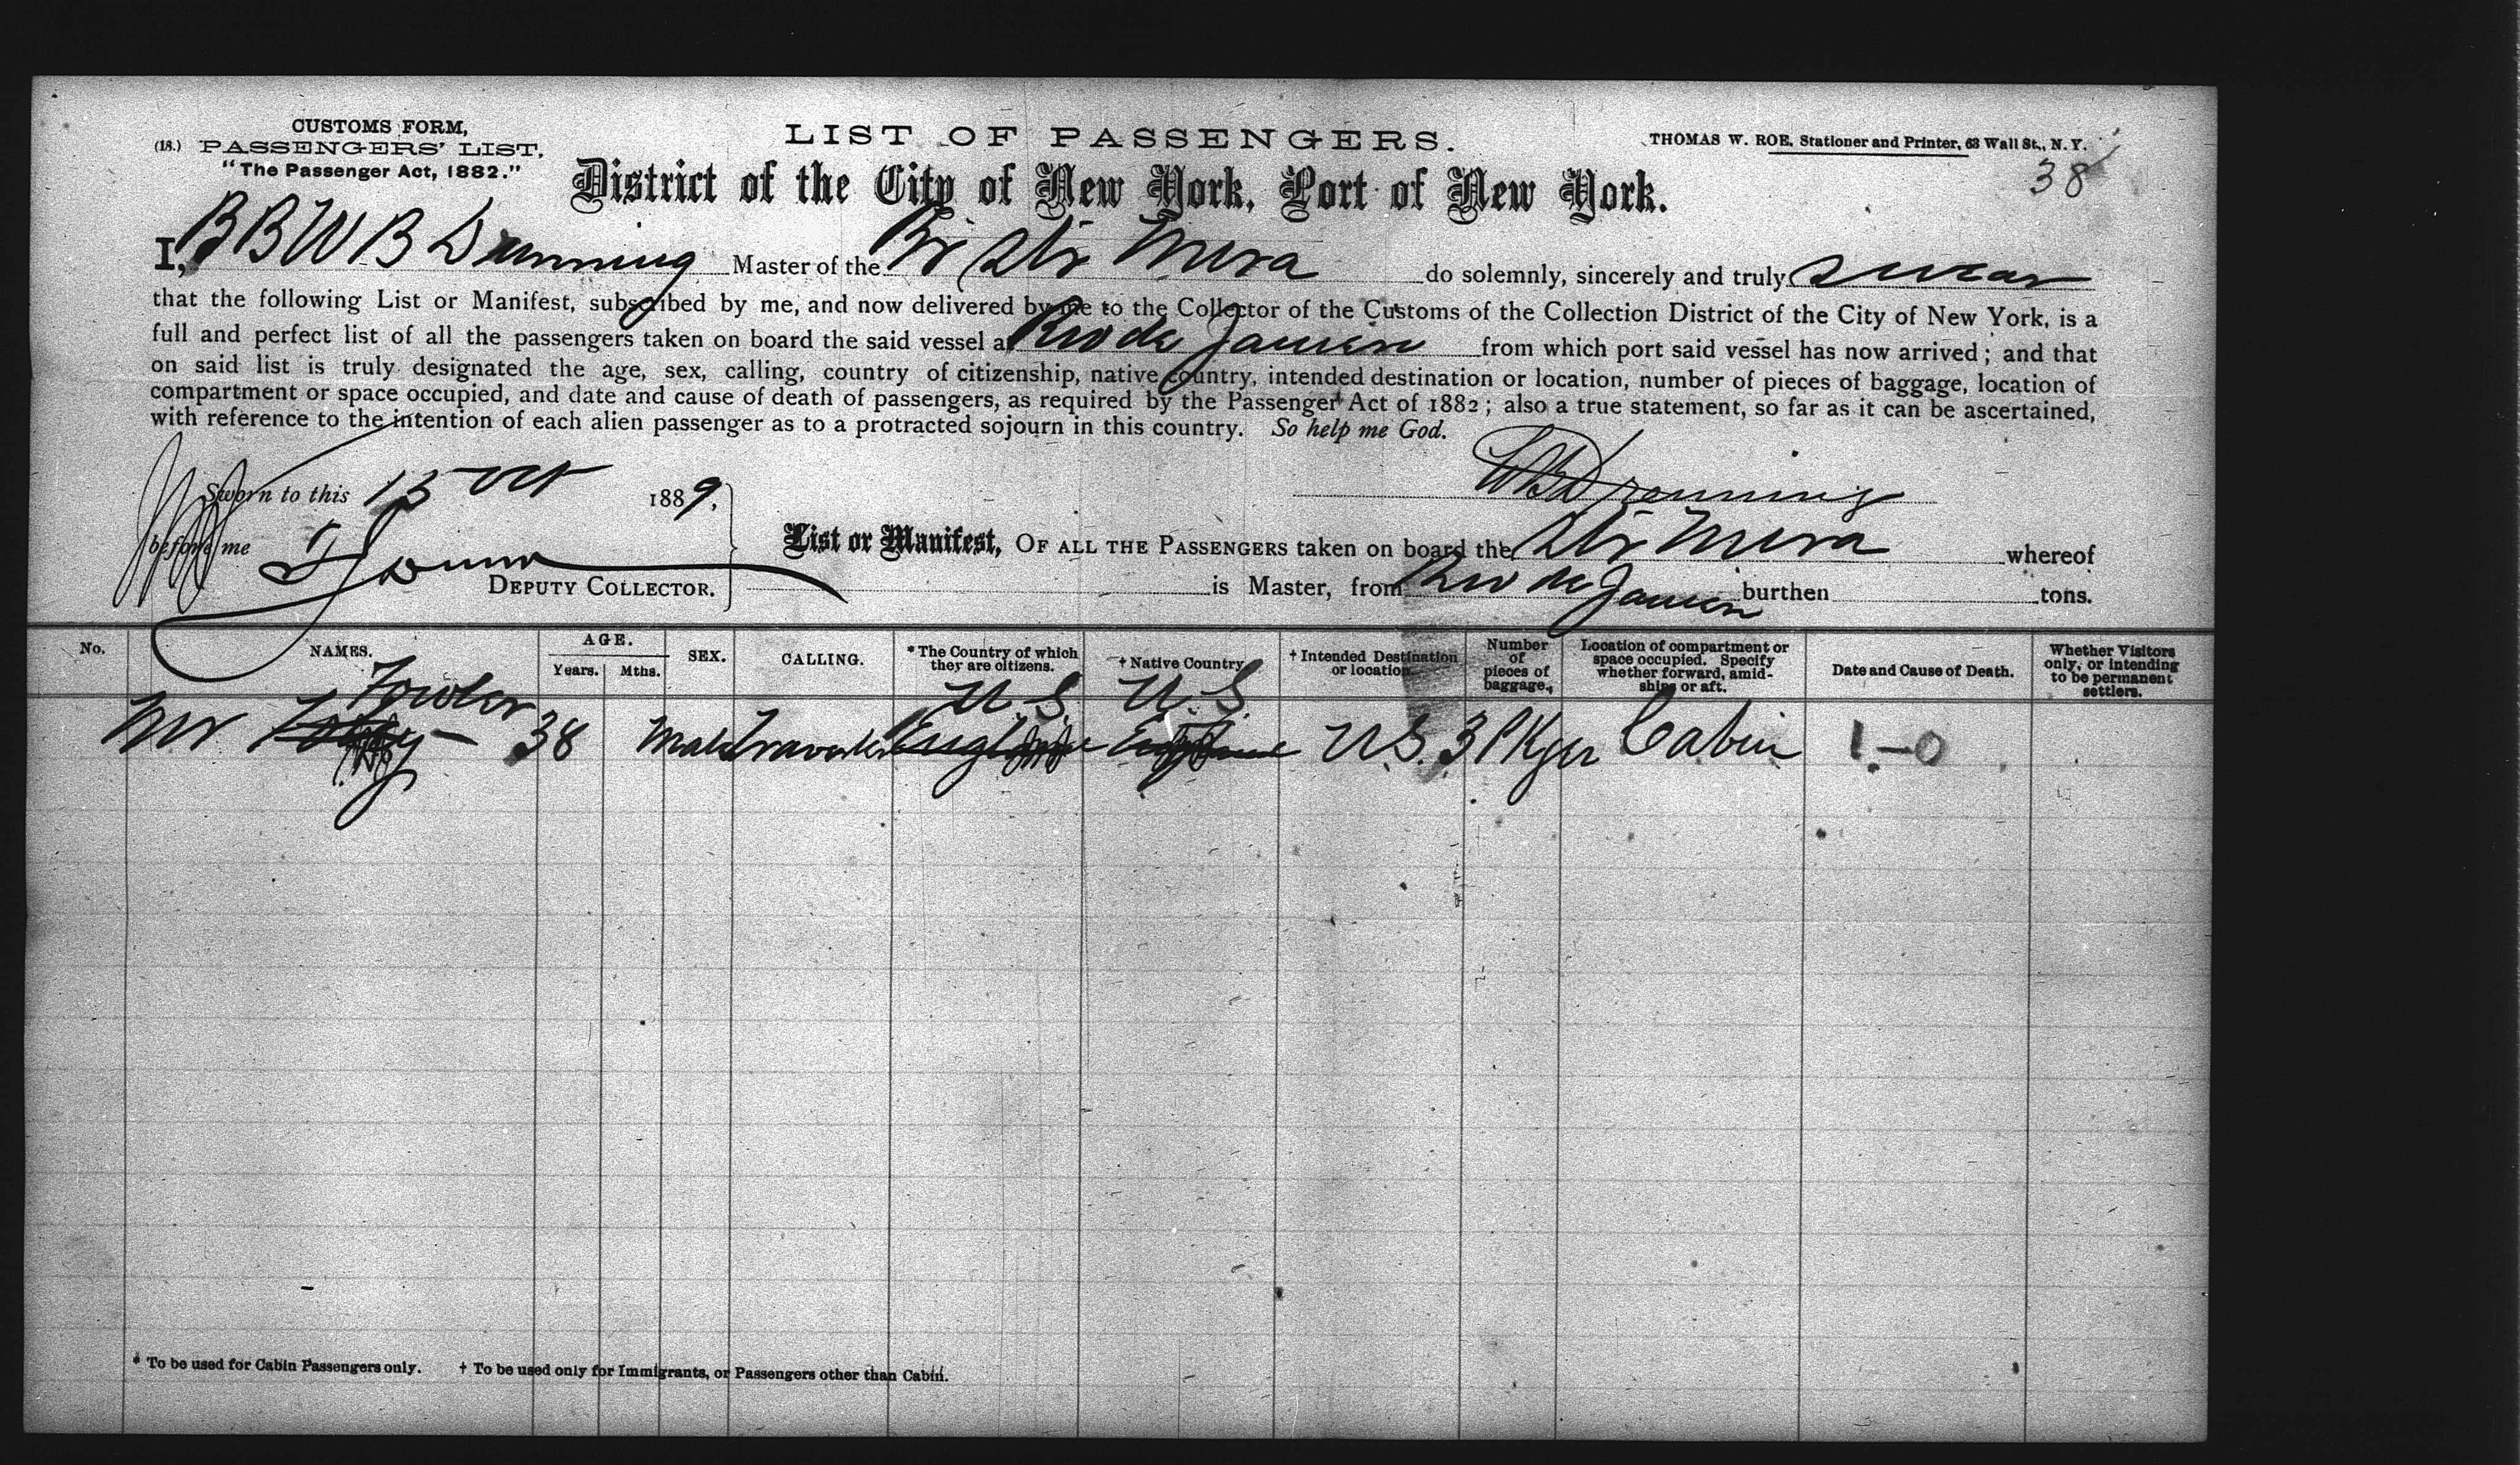 CUSTOMS FORM,
(18.) PASSENGERS' LIST,
"The Passenger Act, 1882."
LIST OF PASSENGERS.
THOMAS W. ROE, Stationer and Printer, 63 Wall St., N. Y.
38
District of the City of New York, Port of New York.
I, BBWB Dunning Master of the Br Str Mera do solemnly, sincerely and truly swear
that the following List or Manifest, subscribed by me, and now delivered by me to the Collector of the Customs of the Collection District of the City of New York, is a
full and perfect list of all the passengers taken on board the said vessel at Rio de Janeiro from which port said vessel has now arrived; and that
on said list is truly designated the age, sex, calling, country of citizenship, native country, intended destination or location, number of pieces of baggage, location of
compartment or space occupied, and date and cause of death of passengers, as required by the Passenger Act of 1882; also a true statement, so far as it can be ascertained,
with reference to the intention of each alien passenger as to a protracted sojourn in this country. So help me God.
Sworn to this 15 Oct 1889,
before me
DEPUTY COLLECTOR.
List or Manifest, OF ALL THE PASSENGERS taken on board the Str Mera whereof
is Master, from Rio de Janeiro burthen tons.
No. NAMES. AGE. Years. Mths. SEX. CALLING. *The Country of which they are citizens. †Native Country †Intended Destination or location. Number of pieces of baggage. Location of compartment or space occupied. Specify whether forward, amidships or aft. Date and Cause of Death. Whether Visitors only, or intending to be permanent settlers.
Fowler U.S. U.S
Mr 38 Male Traveler England England U.S. 3 Pkgs Cabin 1-0
* To be used for Cabin Passengers only. † To be used only for Immigrants, or Passengers other than Cabin.